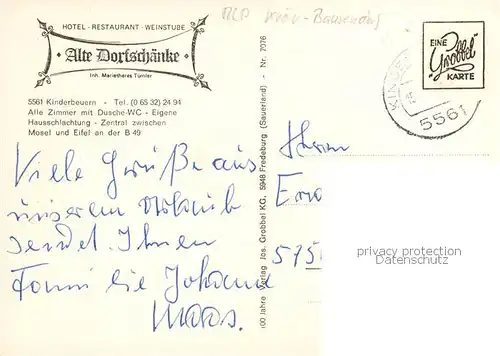 HOTEL - RESTAURANT - WEINSTUBE
· Alte Dorfschänke ·
Inh. Marietheres Türnler
5561 Kinderbeuern - Tel. (0 65 32) 24 94
Alle Zimmer mit Dusche-WC - Eigene
Hausschlachtung - Zentral zwischen
Mosel und Eifel an der B 49
Viele Grüße aus
unserem Urlaub
sendet Ihnen
Familie Johann
Maas.
100 Jahre Verlag Jos. Grobbel KG, 5948 Fredeburg (Sauerland) - Nr. 7076
EINE
Grobbel
KARTE
KINDE
5561
Herrn
575
privacy protection
Datenschutz